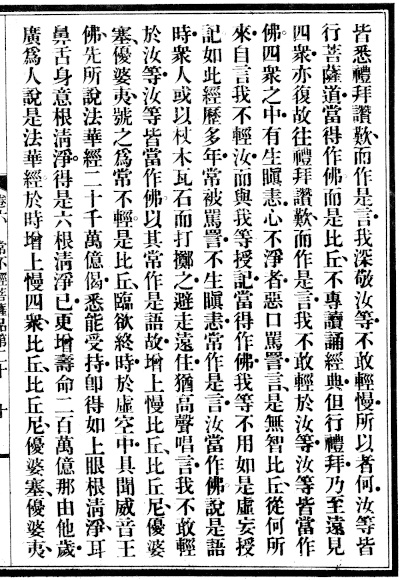 皆悉禮拜讚歎、而作是言、我深敬汝等、不敢輕慢、所以者何、汝等皆
行菩薩道、當得作佛、而是比丘、不專讀誦經典、但行禮拜、乃至遠見
四衆、亦復故往禮拜讚歎、而作是言、我不敢輕於汝等、汝等皆當作
佛、四衆之中、有生瞋恚、心不淨者、惡口罵詈言、是無智比丘、從何所
來、自言我不輕汝、而與我等授記、當得作佛、我等不用如是虛妄授
記、如此經歷多年、常被罵詈、不生瞋恚、常作是言、汝當作佛、說是語
時、衆人或以杖木瓦石而打擲之、避走遠住、猶高聲唱言、我不敢輕
於汝等、汝等皆當作佛、以其常作是語故、增上慢比丘、比丘尼、優婆
塞、優婆夷、號之爲常不輕、是比丘、臨欲終時、於虛空中、具聞威音王
佛、先所說法華經、二十千萬億偈、悉能受持、卽得如上眼根清淨、耳
鼻舌身意根清淨、得是六根清淨已、更增壽命二百萬億那由他歲、
廣爲人說是法華經、於時增上慢四衆、比丘、比丘尼、優婆塞、優婆夷、
卷六 常不輕菩薩品第二十 十